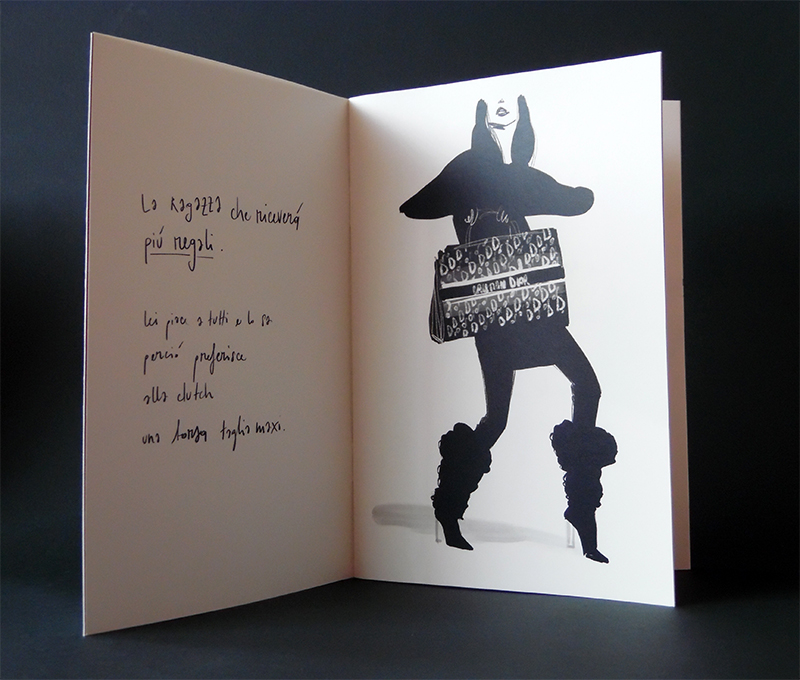 La Ragazza che riceverá
più regali.
lei piace a tutti e lo sa
perció preferisce
alla clutch
una borsa taglia maxi.
CHRISTIAN DIOR